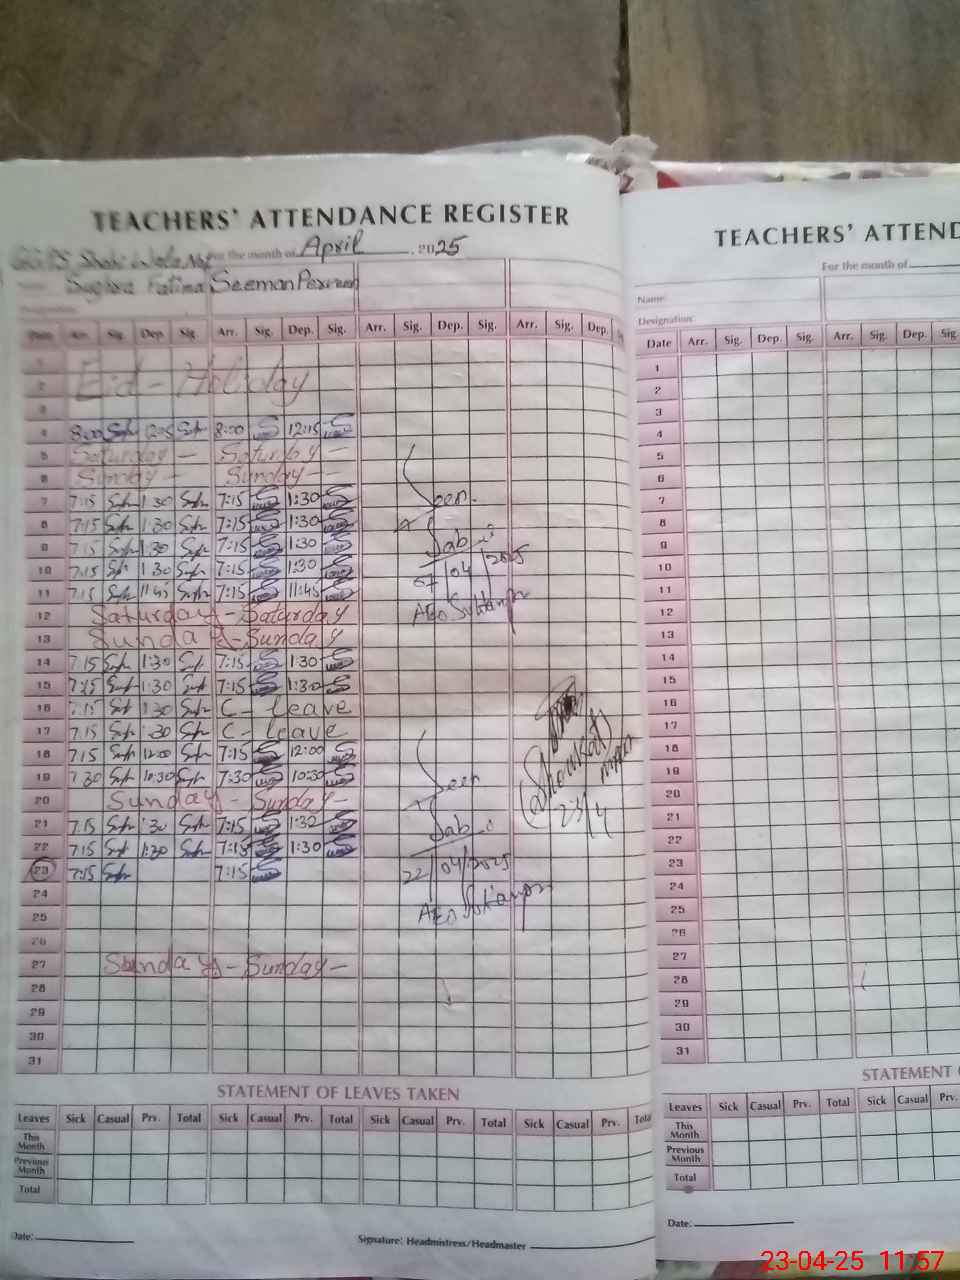 TEACHERS' ATTENDANCE REGISTER
GGPS Shahi Wala For the month of April, 2025
Sughra Fatima Seeman Perveen
Date Arr. Sig. Dep. Sig. Arr. Sig. Dep. Sig. Arr. Sig. Dep. Sig. Arr. Sig. Dep.
1
2 Eid - Holiday
3
4 8:00 12:15 8:00 12:15
5 Saturday - Saturday -
6 Sunday - Sunday -
7 7:15 1:30 7:15 1:30
8 7:15 1:30 7:15 1:30
9 7:15 1:30 7:15 1:30
10 7:15 1:30 7:15 1:30
11 7:15 11:45 7:15 11:45
12 Saturday - Saturday
13 Sunday - Sunday
14 7:15 1:30 7:15 1:30
15 7:15 1:30 7:15 1:30
16 7:15 1:30 C - leave
17 7:15 1:30 C - leave
18 7:15 12:00 7:15 12:00
19 7:30 10:30 7:30 10:30
20 Sunday - Sunday -
21 7:15 1:30 7:15 1:32
22 7:15 1:30 7:15 1:30
23 7:15 7:15
24
25
26
27 Sunday - Sunday -
28
29
30
31
Seen
07/04/2025
AEO
Seen
22/04/2025
AEO
23/4
STATEMENT OF LEAVES TAKEN
Leaves Sick Casual Prv. Total Sick Casual Prv. Total Sick Casual Prv. Total Sick Casual Prv. Total
This Month
Previous Month
Total
Date:
Signature: Headmistress/Headmaster
TEACHERS' ATTEND
For the month of
Name:
Designation:
Date Arr. Sig. Dep. Sig. Arr. Sig. Dep. Sig.
1
2
3
4
5
6
7
8
9
10
11
12
13
14
15
16
17
18
19
20
21
22
23
24
25
26
27
28
29
30
31
STATEMENT
Leaves Sick Casual Prv. Total Sick Casual Prv.
This Month
Previous Month
Total
Date:
23-04-25 11:57